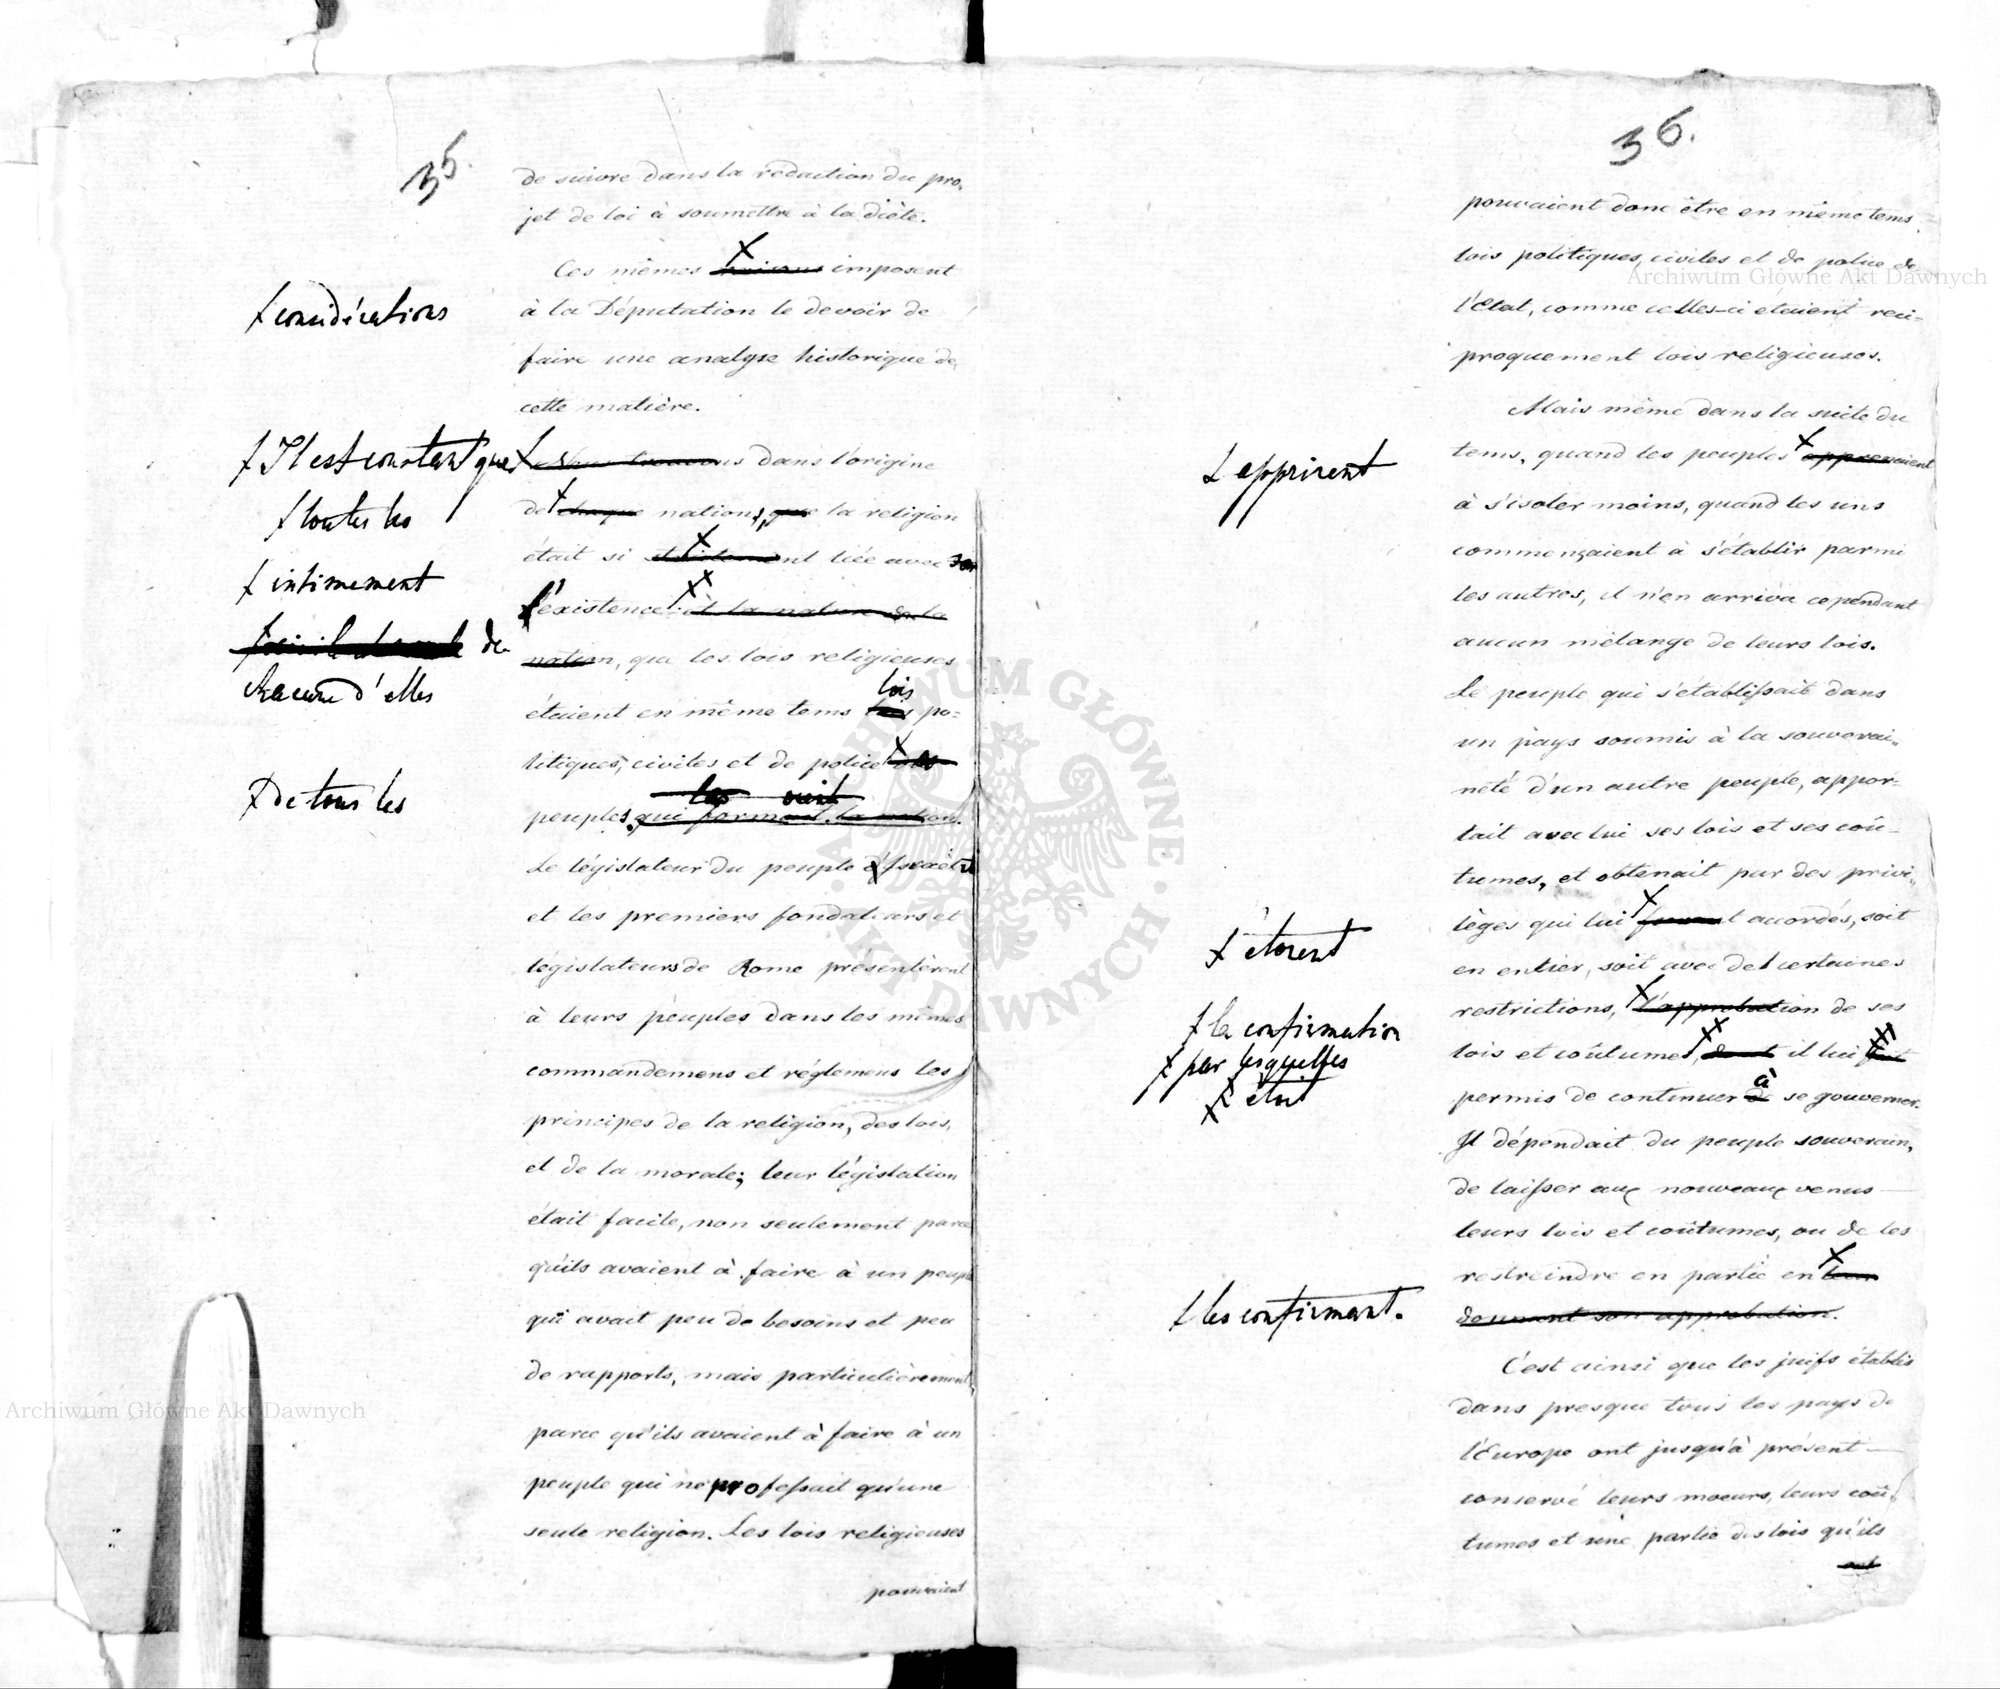 35.
de suivre dans la rédaction du pro-
jet de loi à soumettre à la diète.
Ces mêmes imposent
considérations
à la Députation le devoir de
faire une analyse historique de
cette matière.
Il est constant que
dans l'origine
de nations, que la religion
toutes les
était si liée avec son
intimement
l'existence et la nature de la
nation, que les lois religieuses
de
chacune d'elles
lois
étaient en même tems les po-
litiques, civiles et de police des
de tous les
peuples, qui forment la nation.
Le législateur du peuple
et les premiers fondateurs et
législateurs de Rome présentèrent
à leurs peuples dans les mêmes
commandemens et réglemens les
principes de la religion, des lois,
et de la morale; leur législation
était facile, non seulement parce
qu'ils avaient à faire à un peuple
qui avait peu de besoins et peu
de rapports, mais particulièrement,
parce qu'ils avaient à faire à un
peuple qui ne professait qu'une
seule religion. Les lois religieuses
pouvaient
36.
pouvaient donc être en même tems
lois politiques, civiles et de police de
l'Etat, comme celles-ci étaient reci-
proquement lois religieuses.
Mais même dans la suite du
tems, quand les peuples apprenaient
apprirent
à s'isoler moins, quand les uns
commençaient à s'établir parmi
les autres, il n'en arriva cependant
aucun mélange de leurs lois.
Le peuple qui s'établissait dans
un pays soumis à la souverai-
neté d'un autre peuple, appor-
tait avec lui ses lois et ses coû-
tumes, et obtenait par des privi-
lèges qui lui furent accordés, soit
étoient
en entier, soit avec de certaines
restrictions, l'approbation de ses
la confirmation
lois et coûtumes, dont il lui fut
par lesquelles
étoit
à
permis de continuer de se gouverner.
Il dépendait du peuple souverain,
de laisser aux nouveaux venus
leurs lois et coûtumes, ou de les
restreindre en partie en leur
les confirmant.
donnant son approbation.
C'est ainsi que les juifs établis
dans presque tous les pays de
l'Europe ont jusqu'à présent
conservé leurs moeurs, leurs coû-
tumes et une partie des lois qu'ils
ont
Archiwum Główne Akt Dawnych
Archiwum Główne Akt Dawnych
ARCHIWUM GŁÓWNE · AKT DAWNYCH ·